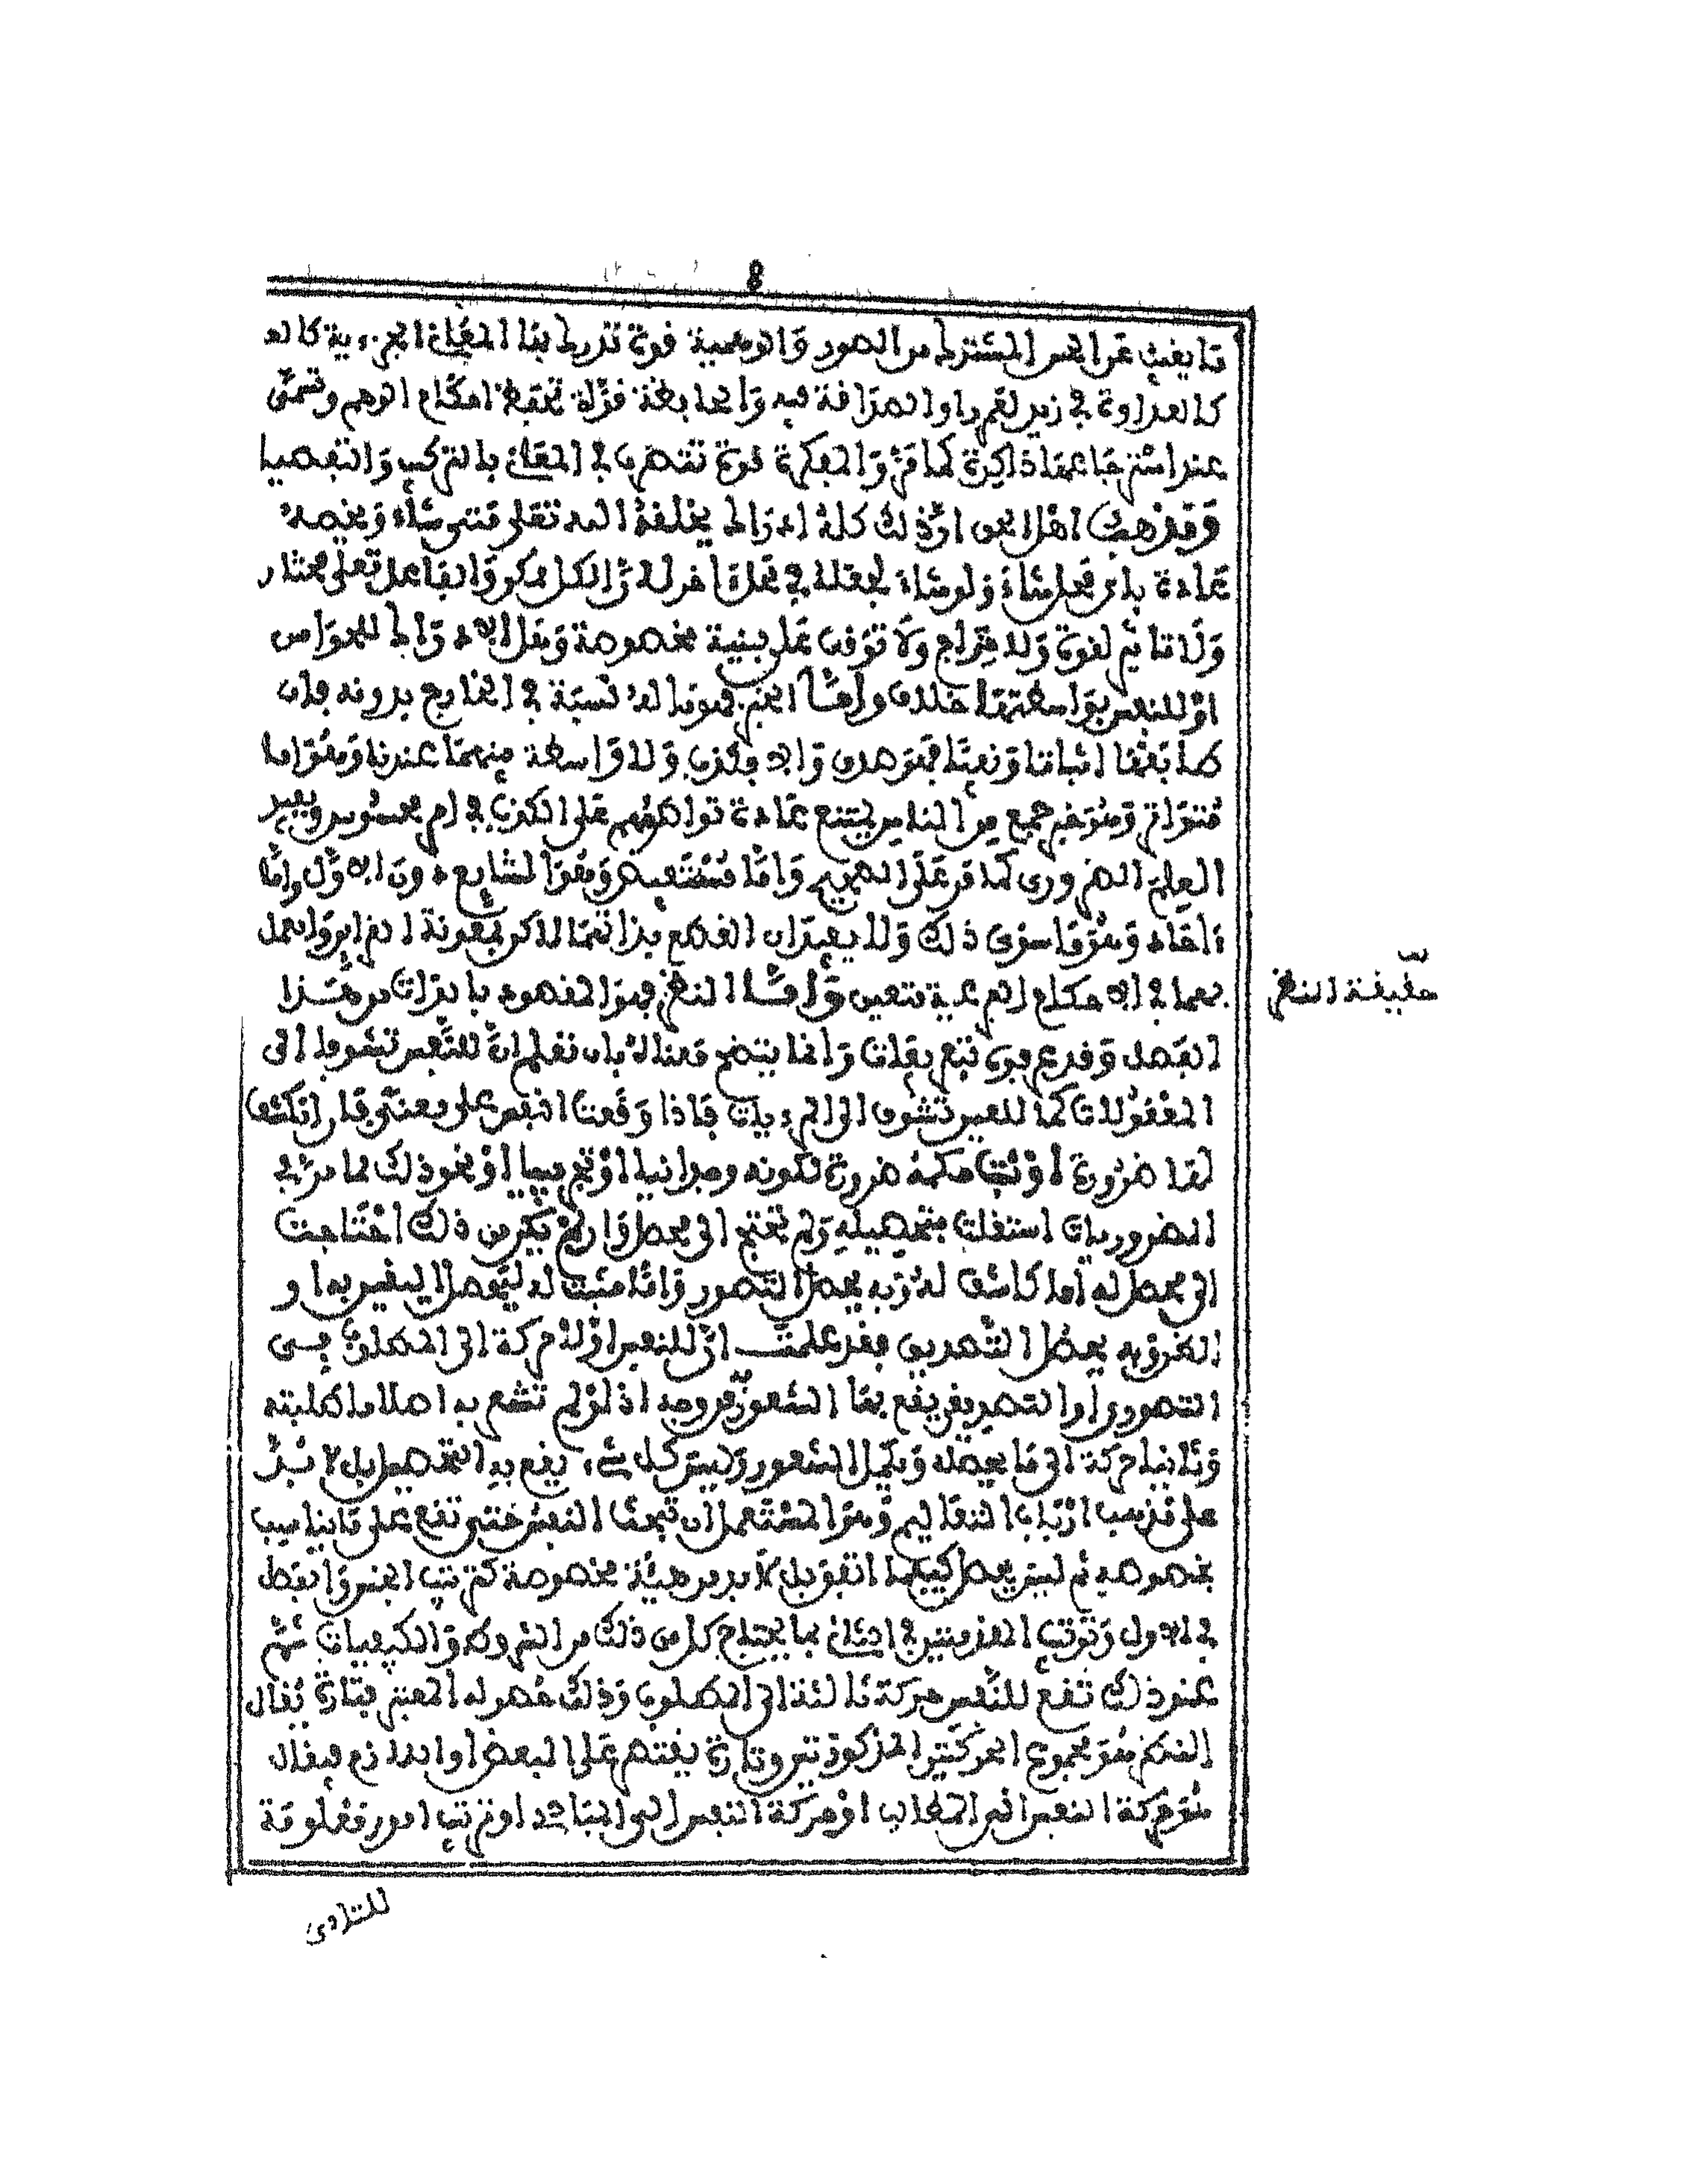 8
ما يغيب عن الحس المشترك من الصور والوهمية قوة تدرك بها المعاني الجزءية كالعد
كالعداوة في زيد لعمرو او الصداقة فيه والحافظة قوة تحفظ احكام الوهم وتسمى
عند استرجاعها ذاكرة كما مر والمفكرة قوة تتصرف في المعاني بالتركيب والتفصيل
وقد ذهب اهل الحق ان ذلك كله ادراك يخلقه الله تعلى متى شاء ويخصه
عادة باي محل شاء ولو شاء لجعله في محل ءاخر له والكل ممكن والفاعل تعلى مختار
ولا تاثير لقوة ولا مزاج ولا توقف على بنية مخصوصة وهل الادراك للحواس
او للنفس بواسطتها خلاف واما الخبر فهو ما له نسبة في الخارج بدونه فان
طابقها اثباتا ونفيا فهو صدق والا فكذب ولا واسطة بينهما عندنا وهو اما
متواتر وهو خبر جمع من الناس يمتنع عادة تواطؤهم على الكذب في امر محسوس ويفيد
العلم الضروري كما مر على الصحيح واما مستفيض وهو الشايع دون الاول واما
ءاحاد وهو ما سوى ذلك ولا يفيدان القطع بذاتهما لاكن بمعونة القراين والعمل
بهما في الاحكام الشرعية متعين واما النظر فهو المقصود بالذات من هذا
الفصل وقد عرف بتعريفات وانما يتضح معناه بان تعلم ان للنفس تشوفا الى
المعقولات كما للعين تشوف الى المرءيات فاذا وقعت النفس على معنى فان انكشف
لها ضرورة او ثبت حكمه ضرورة لكونه وجدانيا او تجريبيا او نحو ذلك مما مر في
الضروريات استقلت بتحصيله ولم تحتج الى محصل وان لم يكن من ذلك احتاجت
الى محصل له اما كاشف له وبه يحصل التصور واما مثبت له ليحصل اليقين به او
الظن وبه يحصل التصديق فقد علمت ان للنفس اولا حركة الى المطلوب
التصوري او التصديقي يقع بها الشعور من وجه اذ لو لم تشعر به اصلا ما طلبته
وثانيا حركة الى ما يحصله ويكمل الشعور وليس كل شيء يقع به التحصيل بل لا بد
على مذهب ارباب التعاليم وهو المستعمل ان تبحث النفس حتى تقع على ما يناسب
بخصوصه ثم ليس يحصل كيفما اتفق بل لا بد من هيئة مخصوصة كترتيب الجنس والفصل
في الاول وترتيب المقدمتين في الثاني بما يحتاج كل من ذلك من الشروط والكيفيات ثم
عند ذلك تقع للنفس حركة ثالثة الى المطلوب وذلك حصوله المعتبر فتارة يقال
النظر هو مجموع الحركتين المذكورتين وتارة يقتصر على البعض او اللازم فيقال
هو حركة النفس في المطالب او حركة النفس الى المبادئ او ترتيب امور معلومة
حقيقة النظر
للتادي